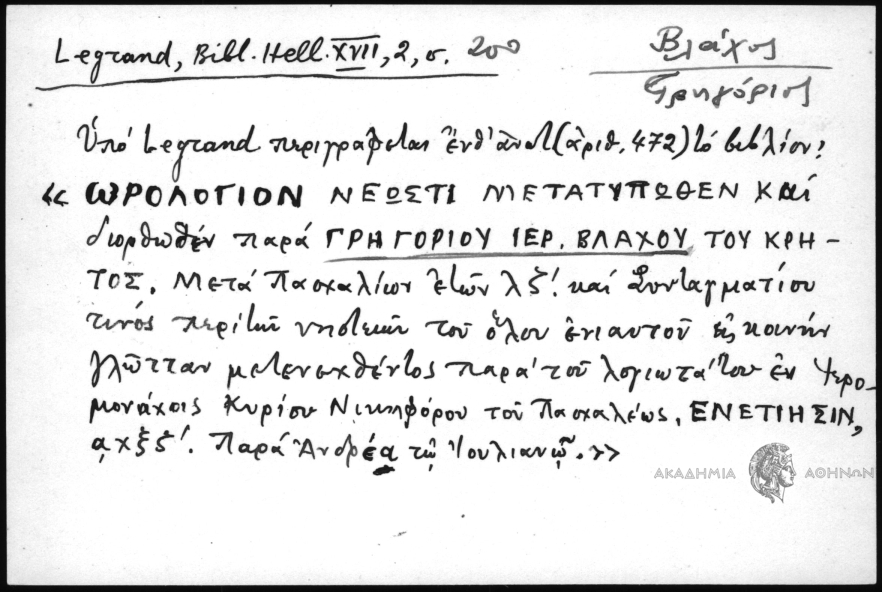 Legrand, Bibl. Hell. XVII, 2, σ. 200
Βλάχος
Γρηγόριος
Ὑπό Legrand περιγράφεται ἐνθ' ἀνωτ. (ἀριθ. 472) τό βιβλίον:
« ΩΡΟΛΟΓΙΟΝ ΝΕΩΣΤΙ ΜΕΤΑΤΥΠΩΘΕΝ ΚΑΙ
διορθωθέν παρά ΓΡΗΓΟΡΙΟΥ ΙΕΡ. ΒΛΑΧΟΥ ΤΟΥ ΚΡΗ-
ΤΟΣ. Μετά Πασχαλίων ἐτῶν λζ'. καί Συνταγματίου
τινός περί τῶν νηστειῶν τοῦ ὅλου ἐνιαυτοῦ εἰς κοινήν
γλῶτταν μετενεχθέντος παρά τοῦ λογιωτάτου ἐν Ἱερο-
μονάχοις Κυρίου Νικηφόρου τοῦ Πασχαλέως. ΕΝΕΤΙΗΣΙΝ,
ᾳχξς'. Παρά Ἀνδρέᾳ τῷ Ἰουλιανῷ. »
ΑΚΑΔΗΜΙΑ ΑΘΗΝΩΝ